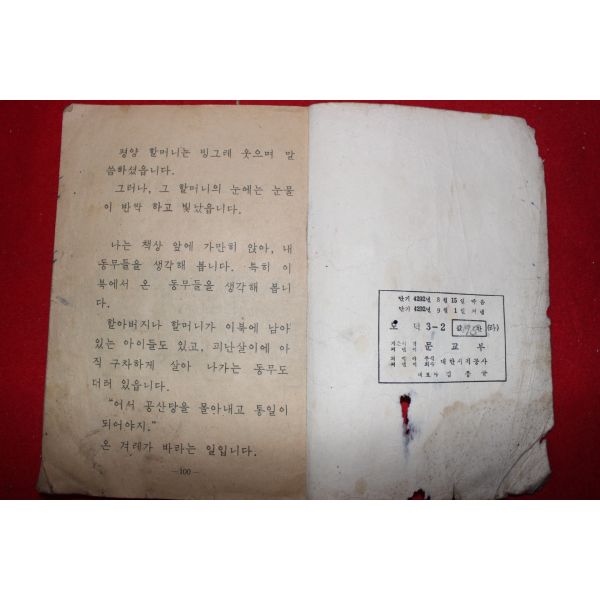 평양 할머니는 빙그레 웃으며 말
씀하셨읍니다.
그러나, 그 할머니의 눈에는 눈물
이 반짝 하고 빛났읍니다.
나는 책상 앞에 가만히 앉아, 내
동무들을 생각해 봅니다. 특히 이
북에서 온 동무들을 생각해 봅니
다.
할아버지나 할머니가 이북에 남아
있는 아이들도 있고, 피난살이에 아
직 구차하게 살아 나가는 동무도
더러 있읍니다.
“어서 공산당을 몰아내고 통일이
되어야지.”
온 겨레가 바라는 일입니다.
—100—
단기 4292년 8월 15일 박음
단기 4292년 9월 1일 펴냄
도 덕 3-2
문 교 부
대한서적공사
대표자 김